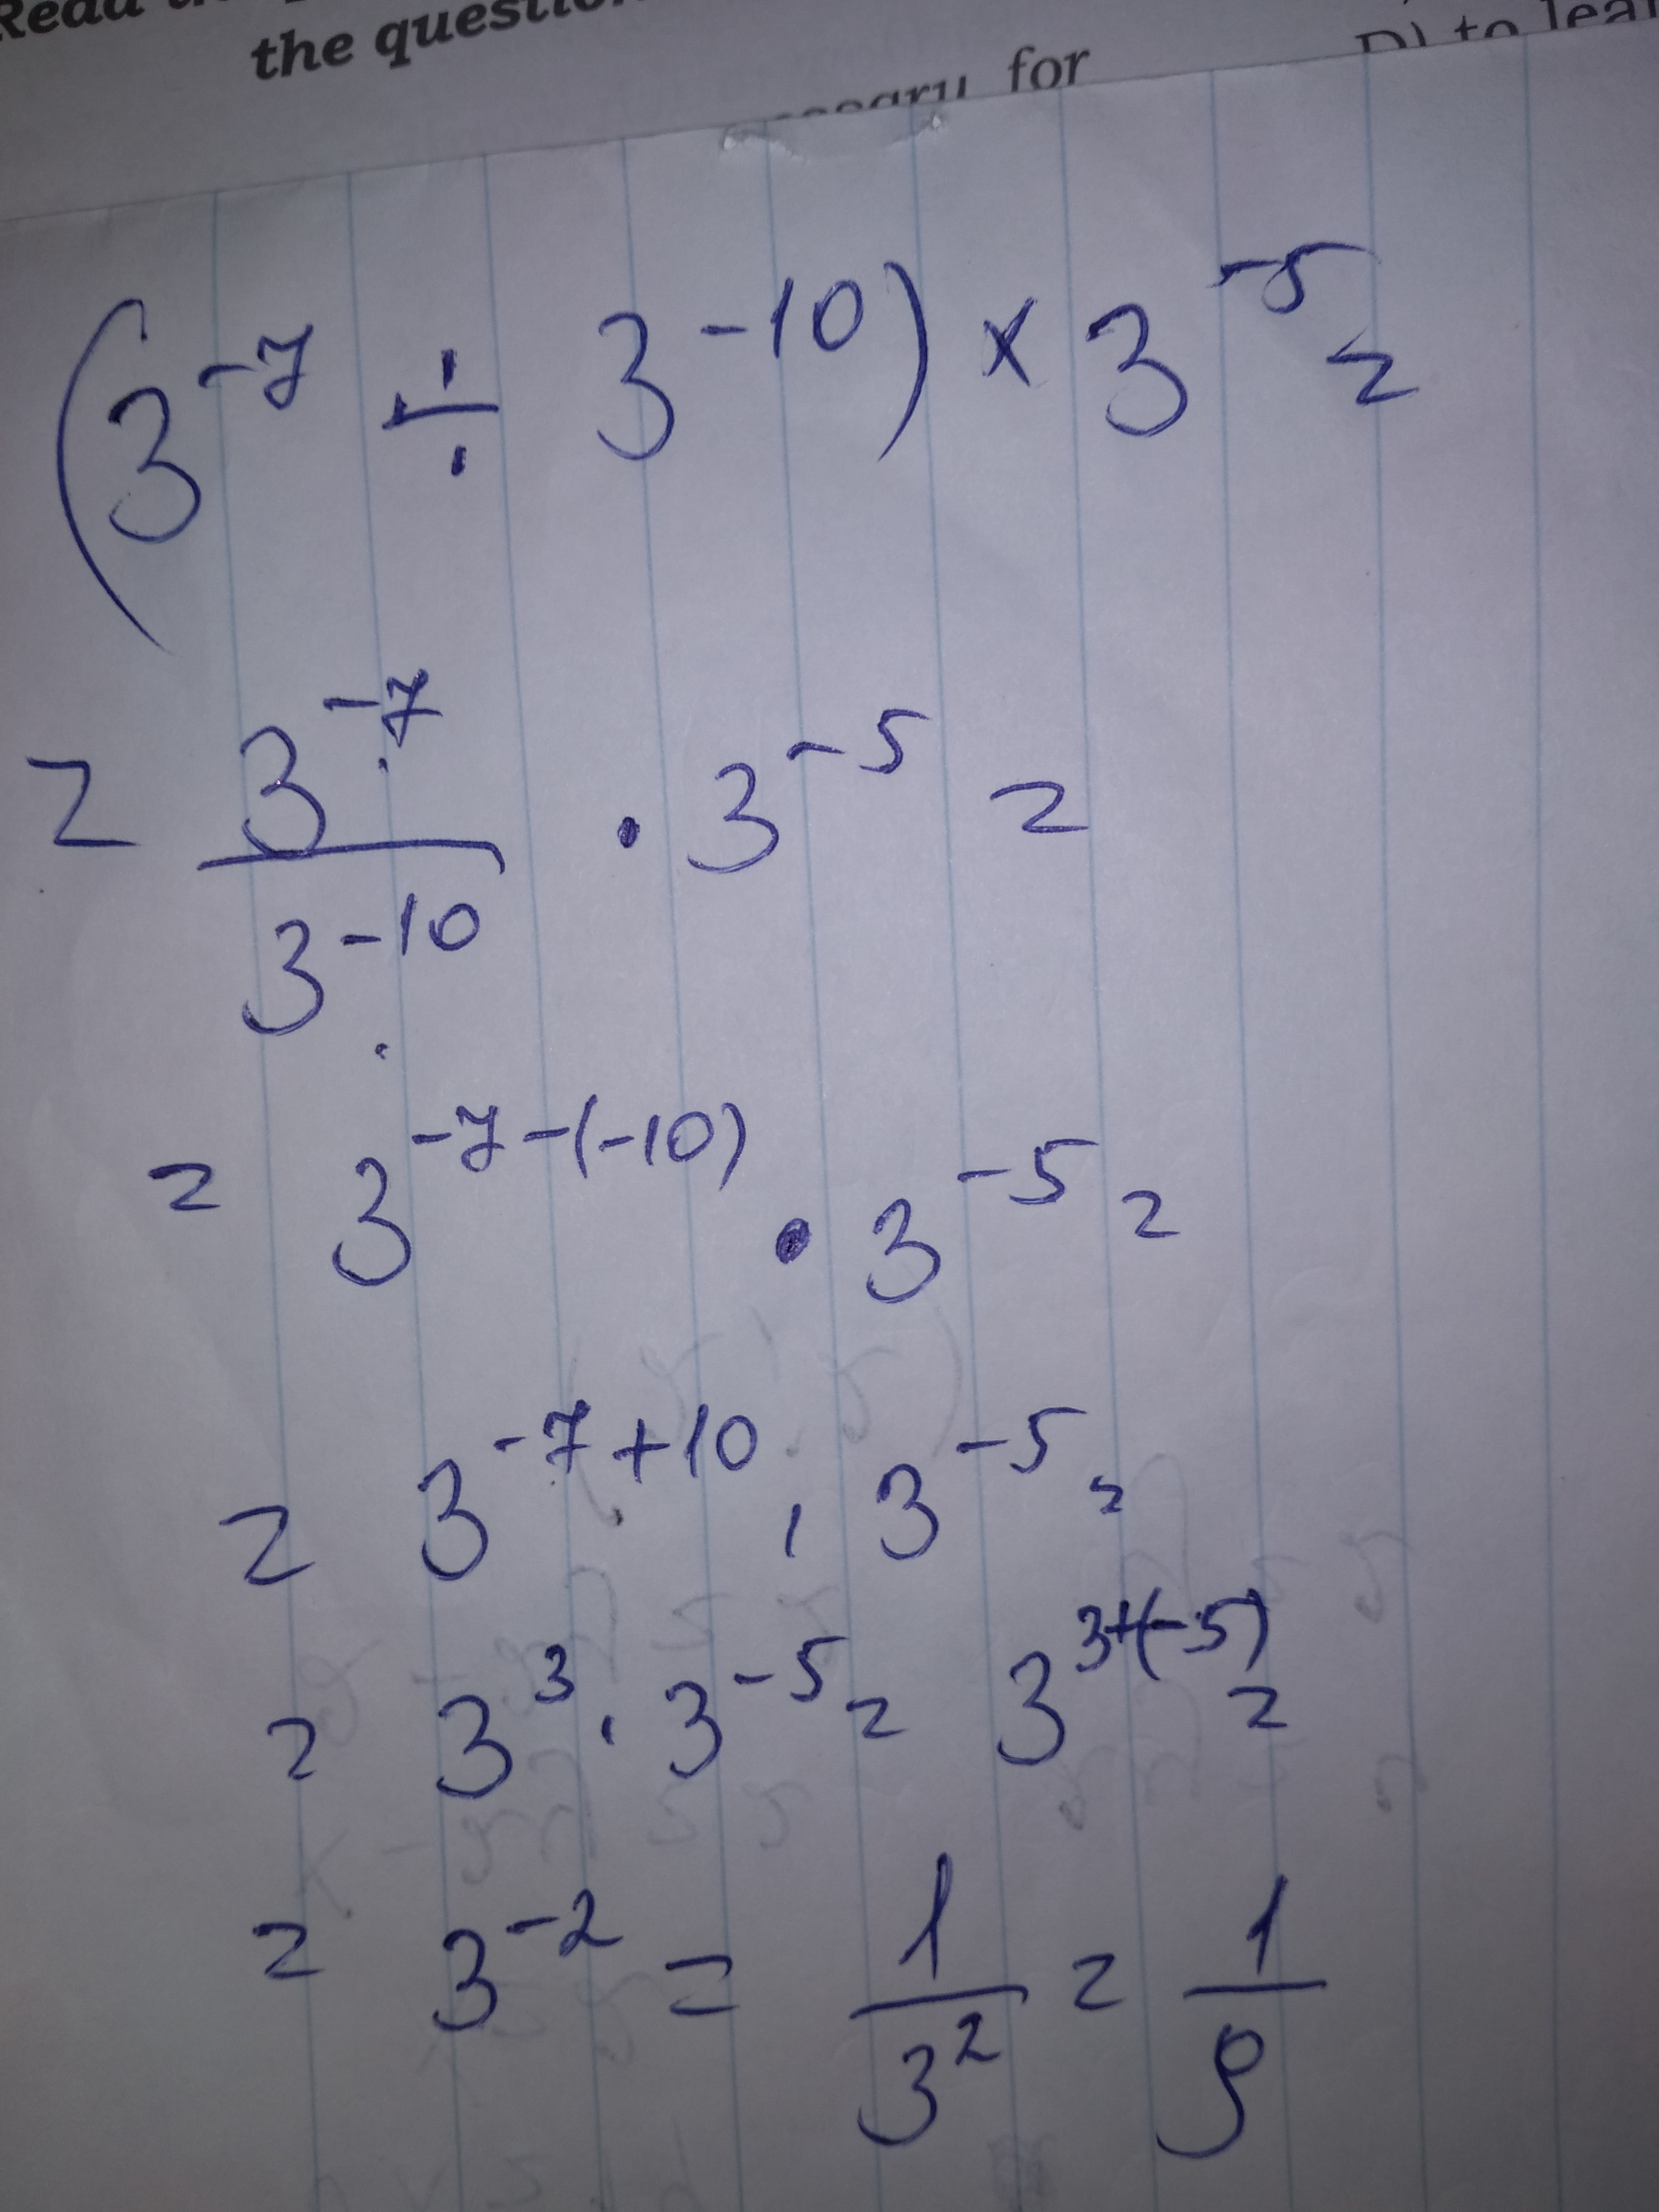 the question
for
D) to lear
(3⁻⁷ ÷ 3⁻¹⁰) × 3⁻⁵ =
= 3⁻⁷ / 3⁻¹⁰ · 3⁻⁵ =
= 3⁻⁷⁻⁽⁻¹⁰⁾ · 3⁻⁵ =
= 3⁻⁷⁺¹⁰ · 3⁻⁵ =
= 3³ · 3⁻⁵ = 3³⁺⁽⁻⁵⁾ =
= 3⁻² = 1/3² = 1/9